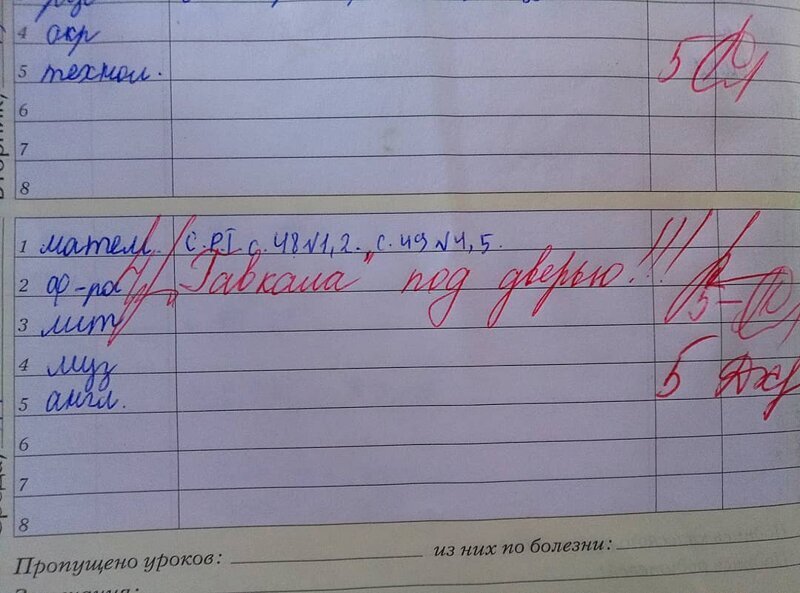 4 окр
5 технол. 5
6
7
8
1 матем. С. РТ с. 48 №1, 2. с. 49 №4, 5.
2 ф-ра !!! „Гавкала" под дверью!!! 5-
3 лит
4 муз
5 англ. 5
6
7
8
Пропущено уроков: из них по болезни: